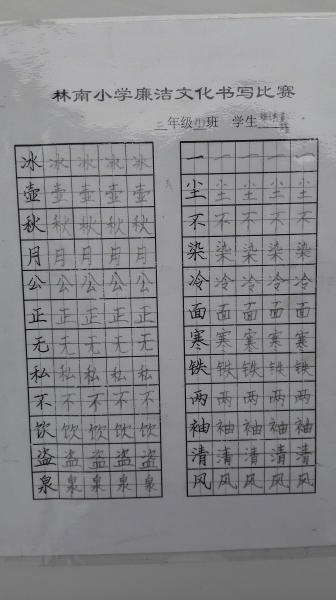 林南小学廉洁文化书写比赛
三年级 班 学生
冰冰冰冰冰
壶壶壶壶壶
秋秋秋秋秋
月月月月月
公公公公公
正正正正正
无无无无无
私私私私私
不不不不不
饮饮饮饮饮
盗盗盗盗盗
泉泉泉泉泉
一一一一一
尘尘尘尘尘
不不不不不
染染染染染
冷冷冷冷冷
面面面面面
寒寒寒寒寒
铁铁铁铁铁
两两两两两
袖袖袖袖袖
清清清清清
风风风风风